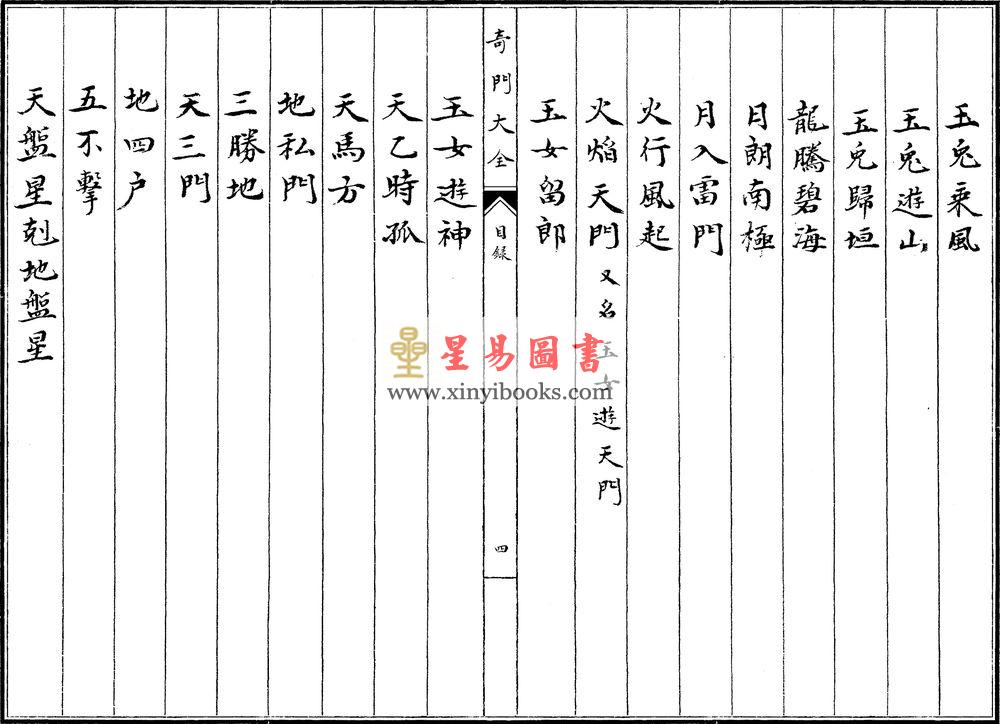 玉兔乘風
玉兔遊山
玉兔歸垣
龍騰碧海
月朗南極
月入雷門
火行風起
火焰天門 又名玉女遊天門
玉女留郎
奇門大全
目錄
四
玉女遊神
天乙時孤
天馬方
地私門
三勝地
天三門
地四户
五不擊
天盤星剋地盤星
星易圖書
www.xinyibooks.com